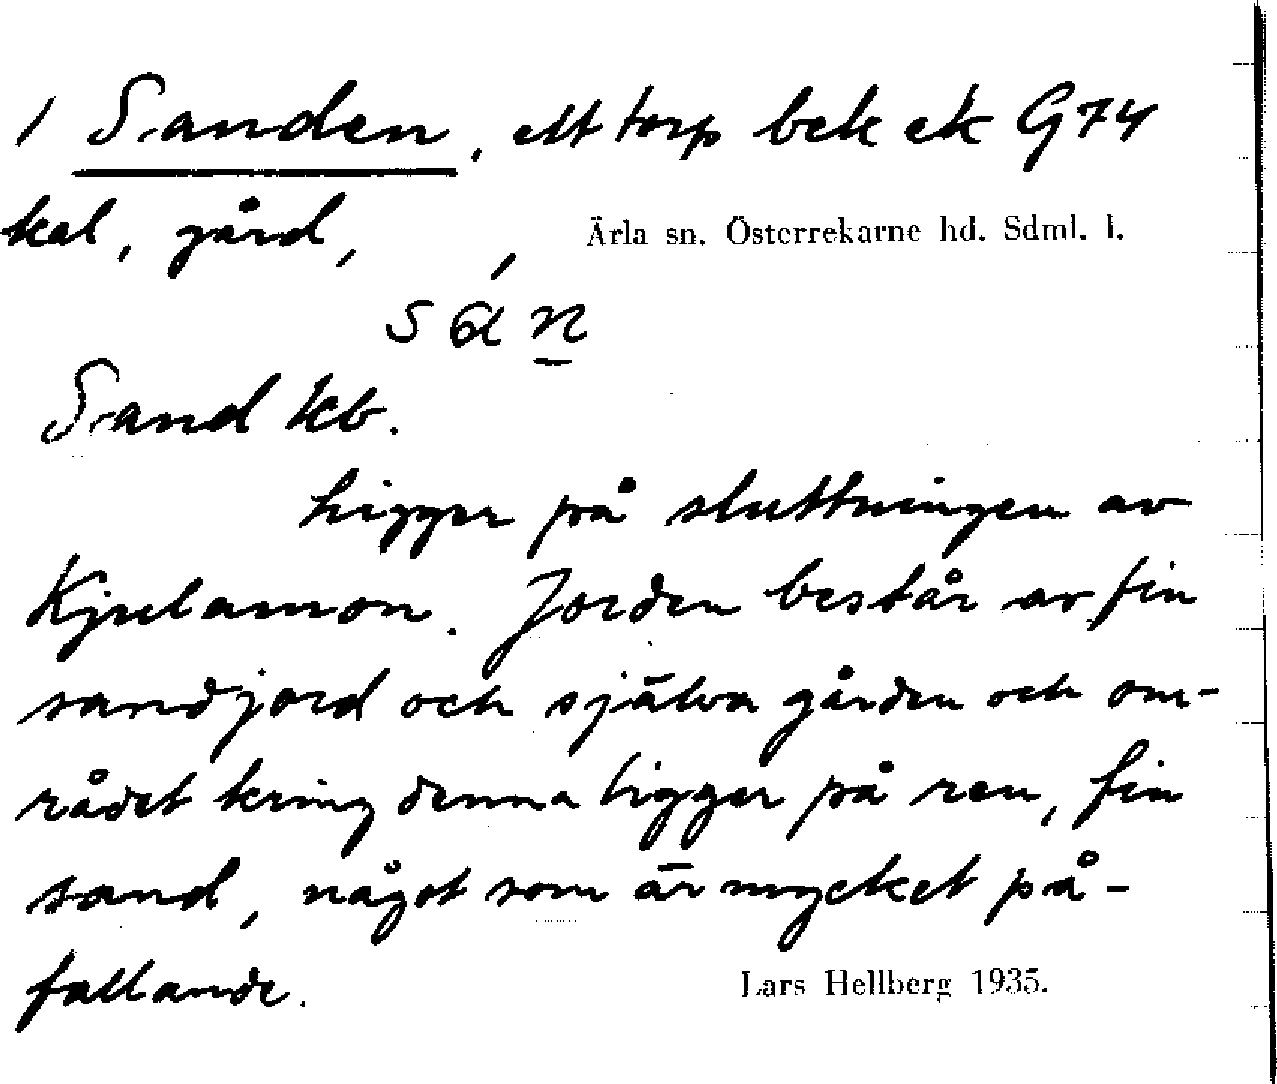 / Sanden, ett torp bek ek G74
kal, gård,
Ärla sn. Österrekarne hd. Sdml. l.
sán
Sand kb.
Ligger på sluttningen av
Kjulamon. Jorden består av fin
sandjord och själva gården och om-
rådet kring denna ligger på ren, fin
sand, något som är mycket på-
fallande.
Lars Hellberg 1935.